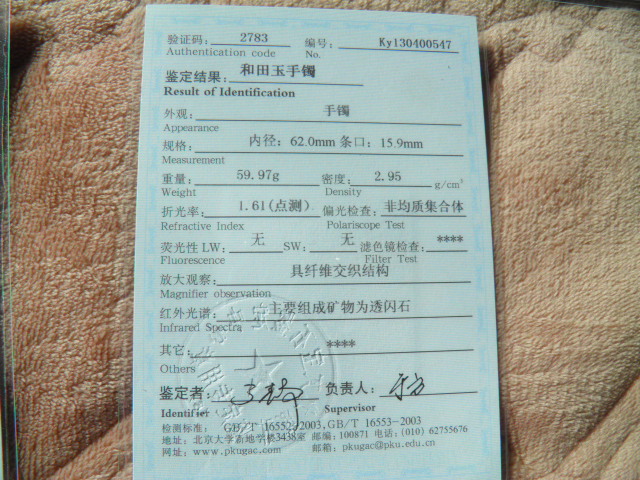 验证码: 2783 编号: Ky130400547
Authentication code No.
鉴定结果: 和田玉手镯
Result of Identification
外观: 手镯
Appearance
规格: 内径: 62.0mm 条口: 15.9mm
Measurement
重量: 59.97g 密度: 2.95 g/cm³
Weight Density
折光率: 1.61(点测) 偏光检查: 非均质集合体
Refractive Index Polariscope Test
荧光性 LW: 无 SW: 无 滤色镜检查: ****
Fluorescence Filter Test
放大观察: 具纤维交织结构
Magnifier observation
红外光谱: 主要组成矿物为透闪石
Infrared Spectra
其它: ****
Others
鉴定者: 负责人:
Identifier Supervisor
检测标准: GB/T 16552-2003,GB/T 16553-2003
地址: 北京大学新地学楼3438室 邮编: 100871 电话: (010) 62755676
网址: www.pkugac.com 邮箱: pkugac@pku.edu.cn